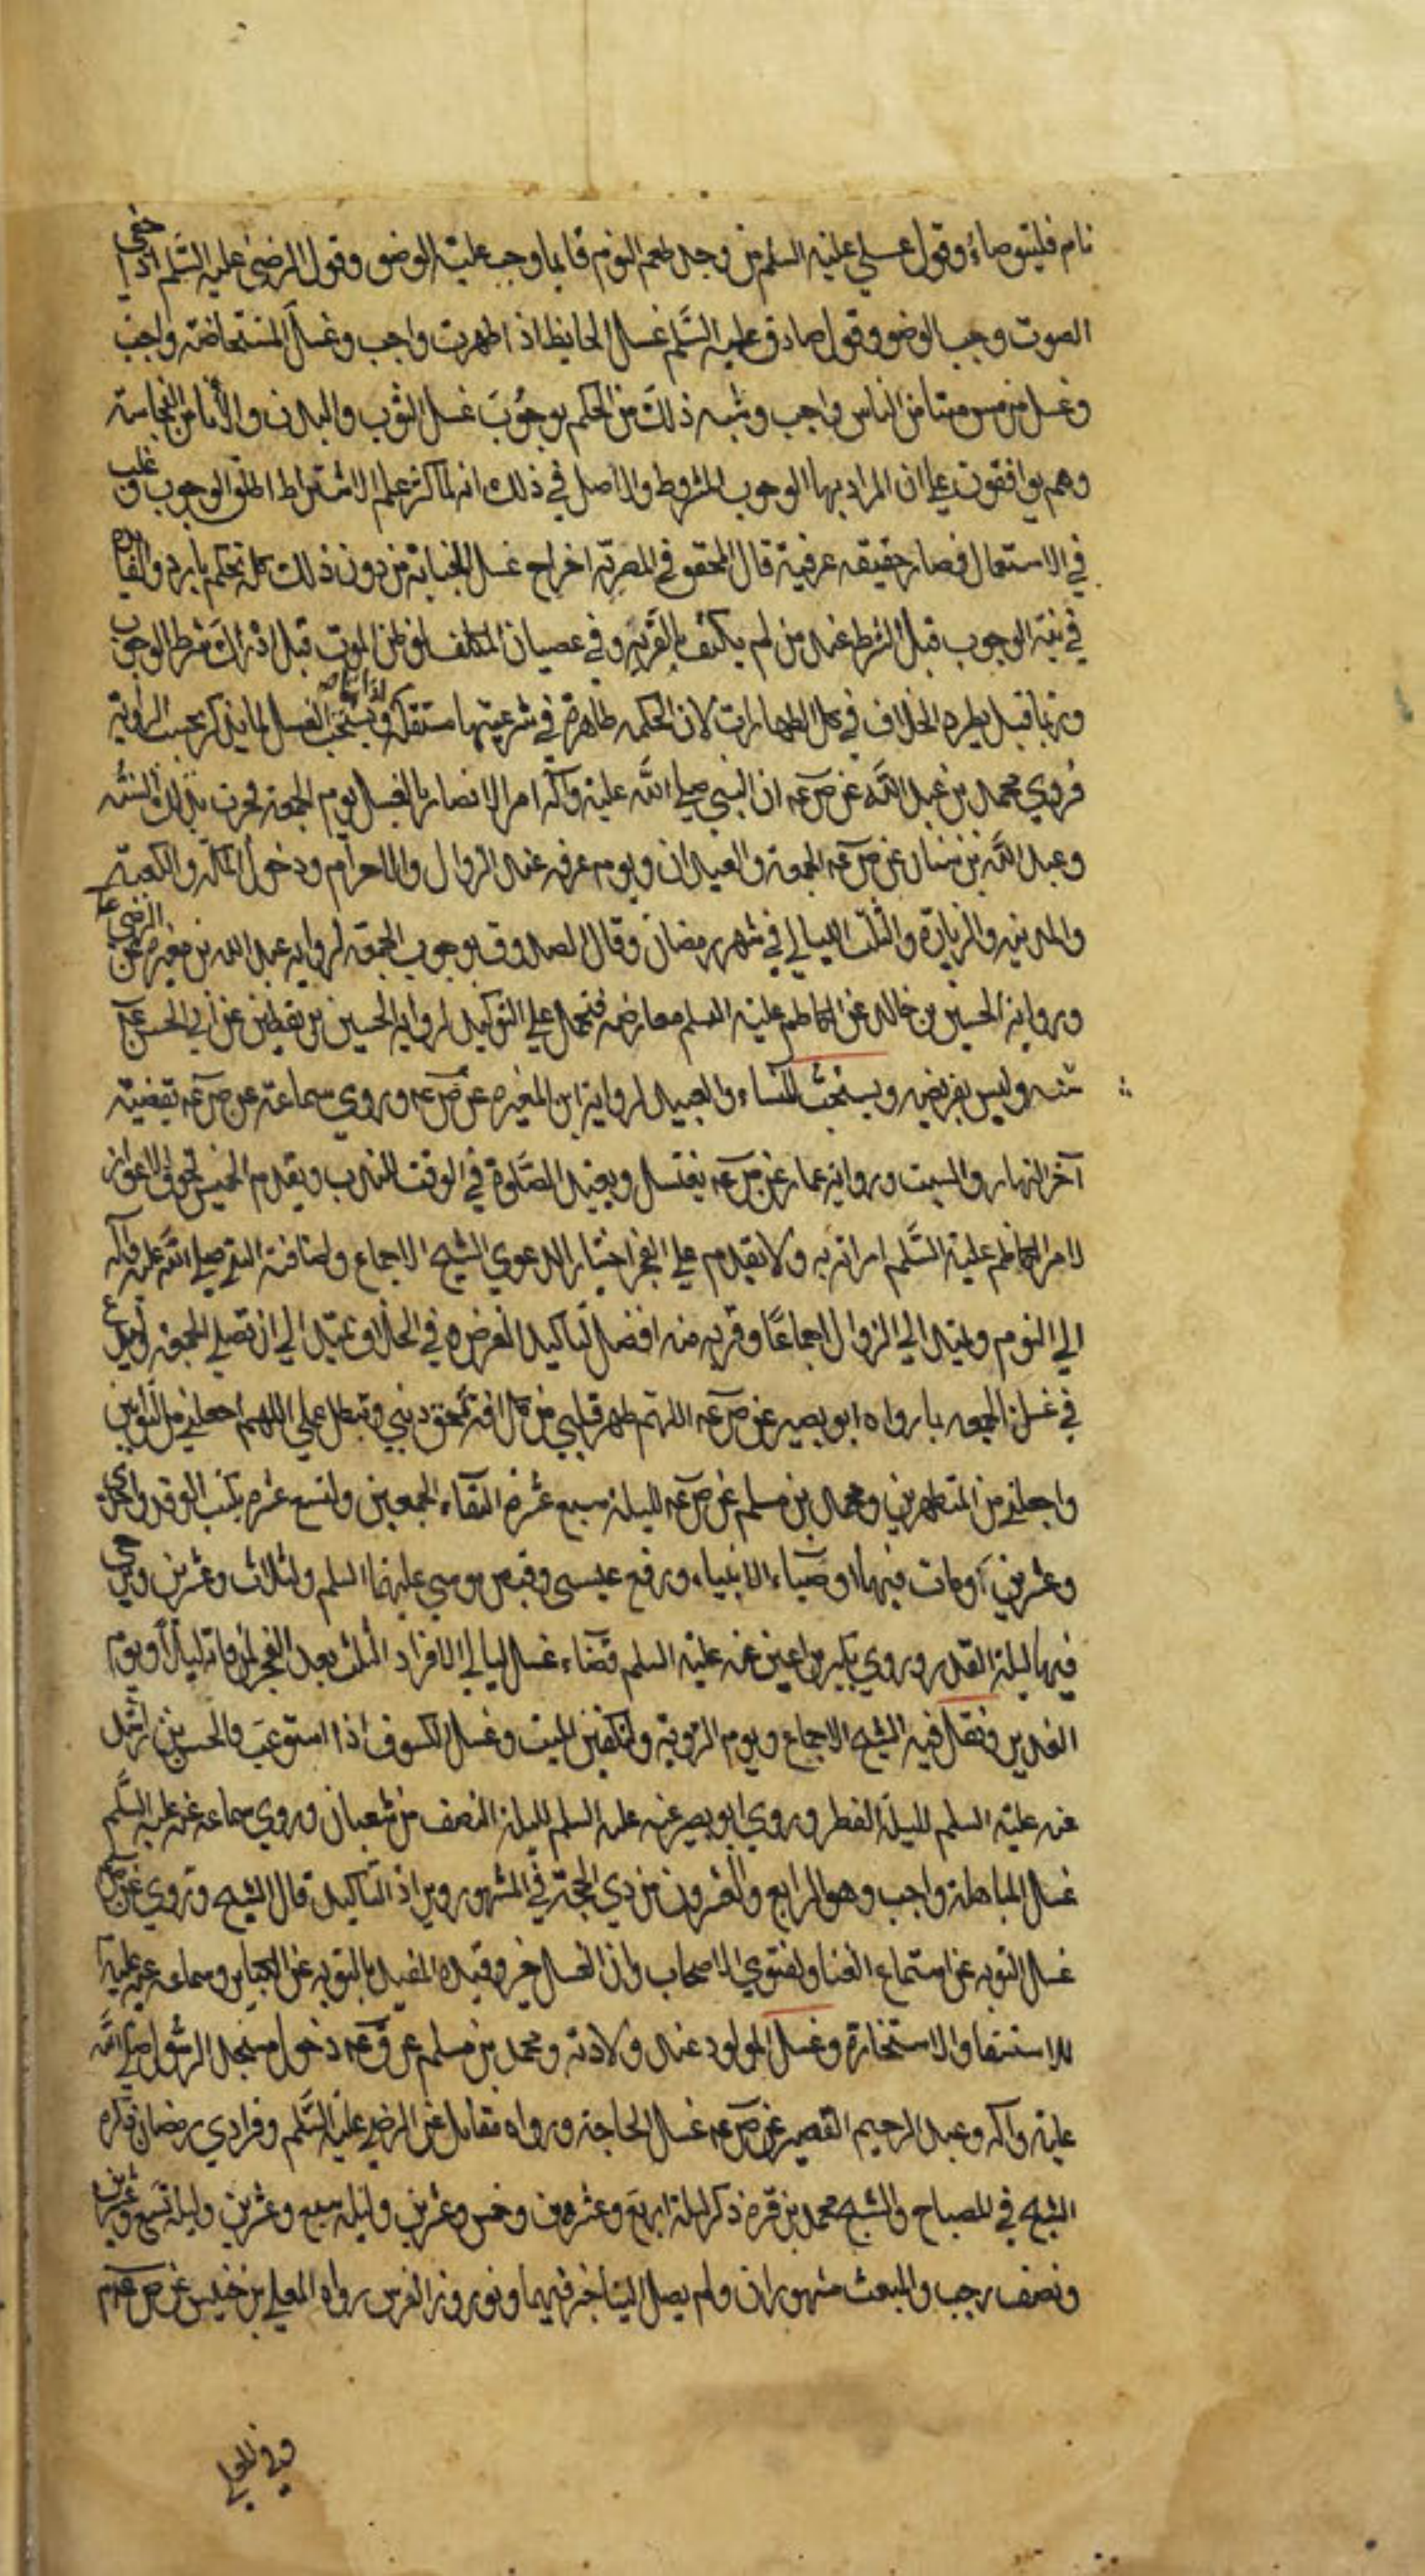 نام فليتوضاء وقول علي عليه السلم من وجد طعم النوم قايما وجب عليه الوضو وقول الرضى عليه السلم اذا خفي
الصوت وجب الوضو وقول صادق عليه السّلم غسل الحايظ اذ اطهرت واجب وغسل المستحاضه واجب
وغسل من مس ميتا من الناس واجب وشبه ذلك من الحكم بوجوب غسل الثوب والبدن والأنا من النجاسة
وهم يوافقون علي ان المراد بها الوجوب المشروط والاصل في ذلك انه لما كثر علم الاشتراط اطلق الوجوب وغلب
في الاستعمال فصار حقيقه عرفية قال المحقق في المصرية اخراج غسل الجنابة من دون ذلك تحكم بارد والفايده
في نية الوجوب قبل الشرط عند من لم يكتف بالقربه وفي عصيان المكلف لو ظن الموت قبل ادراك شرط الوجوب
وربما قيل بطرد الخلاف في كل الطهارات لان الحكمه ظاهرة في شرعيتها مستقلة ويستحب الغسل لما يذكر بحسب الرواية
فروي محمد بن عبد اللّه عن ص عه ان النبي صلى اللّه عليه وآله امر الانصار بالغسل يوم الجمعة فجرت بذلك السّنه
وعبد اللّه بن سنان عن ص عه الجمعة والعيدان ويوم عرفه عند الزوال والاحرام ودخول مكة والكعبة
والمدينه والزيارة والثلث الليالي في شهر رمضان وقال الصدوق بوجوب الجمعة لروايه عبد الله بن مغيره عن الرضى ع
وروايه الحسين بن خالد عن الكاظم عليه السلم معارضه فتحمل علي التوكيد لروايه الحسين بن يقطين عن أبي الحسن ع
سنه وليس بفريضه ويستحب للنساء والعبيد لرواية ابن المغيره عن ص عه وروي سماعة عن ص عه يقضيه
آخر النهار والسبت وروايه عمار عن ص عه يغتسل ويعيد الصّلوة في الوقت للندب ويقدم الخميس لخوف الاعواز
لامر الكاظم عليه السّلم امراته به ولا يقدم علي الفجر اختيارا لدعوي الشيخ الاجماع ولاضافته النبي صلى اللّه عليه وآله
الي اليوم ويمتد الي الزوال اجماعًا وقربه منه افضل لتاكيد الغرض وفي الخلاف يمتد الي ان تصلي الجمعه
في غسل الجمعه بما رواه ابو بصير عن ص عه اللهم طهر قلبي من كل آفة تمحق ديني وتبطل عملي اللهم اجعلني من التّوابين
واجعلني من المتطهرين ومحمد بن مسلم عن ص عه لليلة سبع عشرة التقاء الجمعين ولتسع عشرة يكتب الوفد واحدي
وعشرين اومات فيها اوصياء الانبياء ورفع عيسي وقبض موسي عليهما السلم ولثلاث وعشرين
فيها ليلة القدر وروي بكير بن اعين عنه عليه السلم قضاء غسل ليالي الافراد الثلث بعد الفجر لمن فاته ليلًا ويوم
الغدير ونقل فيه الشيخ الاجماع ويوم التروية ولتكفين الميت وغسل الكسوف اذا استوعب والحسن بن راشد
عنه عليه السلم لليلة الفطر وروي ابو بصير عنه عليه السلم لليلة النصف من شعبان وروي سماعه عنه عليه السّلم
غسل المباهلة واجب وهو الرابع والعشرون من ذي الحجة في المشهور ويراد التاكيد قال الشيخ وروي عن ص
غسل التوبه عن استماع الغنا ولفتوي الاصحاب ولان الغسل خير وقيده المفيد بالتوبه عن الكباير وسماعه عنه عليه
للاستسقا والاستخارة وغسل المولود عند ولادته ومحمد بن مسلم عن ق عه دخول مسجد الرسول صلي اللّه
عليه واله وعبد الرحيم القصير عن ص عه غسل الحاجة ورواه مقاتل عن الرضى عليه السّلم وفرادي رمضان ذكره
الشيخ في المصباح والشيخ محمد بن قره ذكر ليلة اربع وعشرين وخمس وعشرين وليلة سبع وعشرين وليلة تسع وعشرين
ونصف رجب والمبعث مشهوران ولم يصل الينا خبر فيهما ونوروز الفرس رواه المعلي بن خنيس عن ص عه